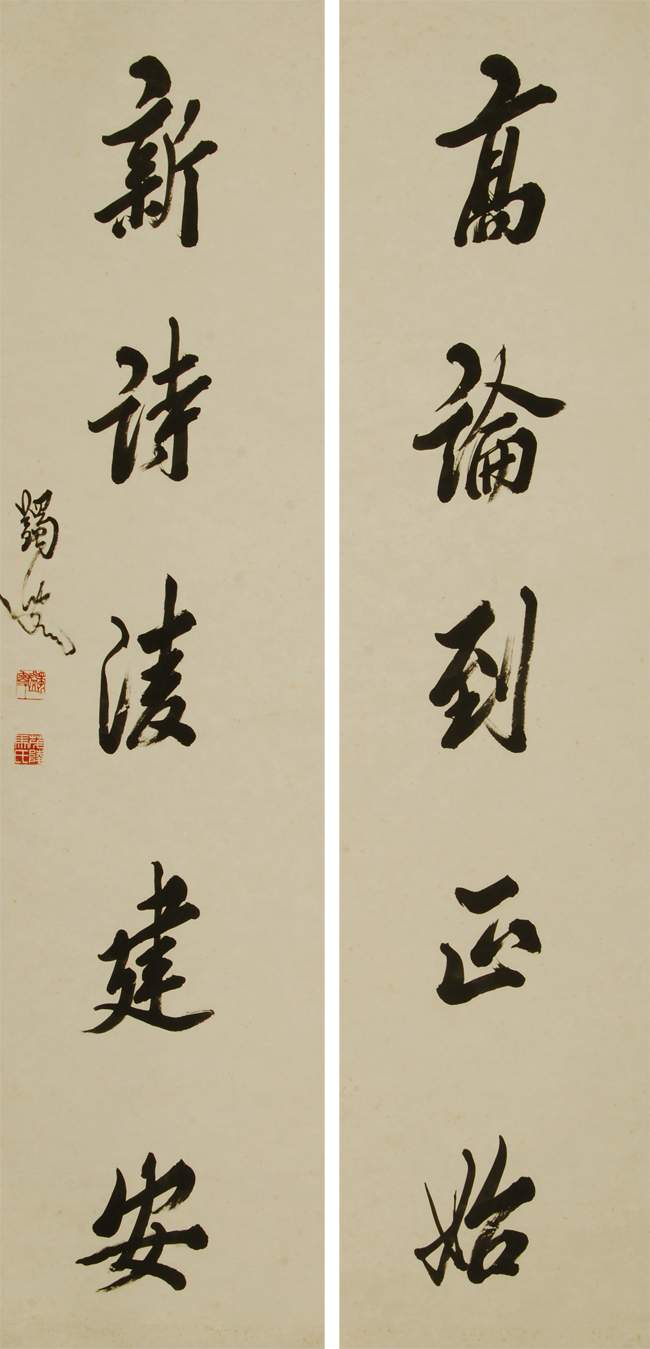 高論到正始
新詩淩建安
蠲叟